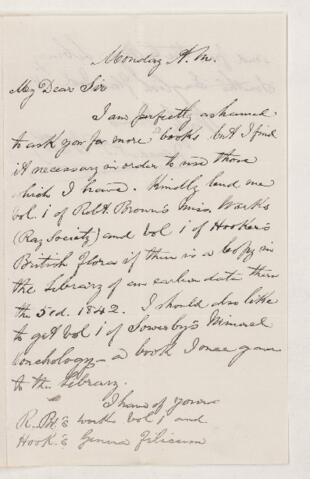 Monday A.M.
My Dear Sir
I am perfectly ashamed
to ask you for more books but I find
it necessary in order to use those
which I have. Kindly lend me
vol. 1 of Robt. Brown's Misc. Works
(Ray Society) and vol 1 of Hooker's
British Flora if there is a copy in
the Library of an earlier date than
the 5 ed. 1842. I should also like
to get vol 1 of Sowerby's Mineral
Conchology - a book I once gave
to the Library.
I have of yours
R. Br.'s works Vol 1 and
Hook.'s Genera Filicum